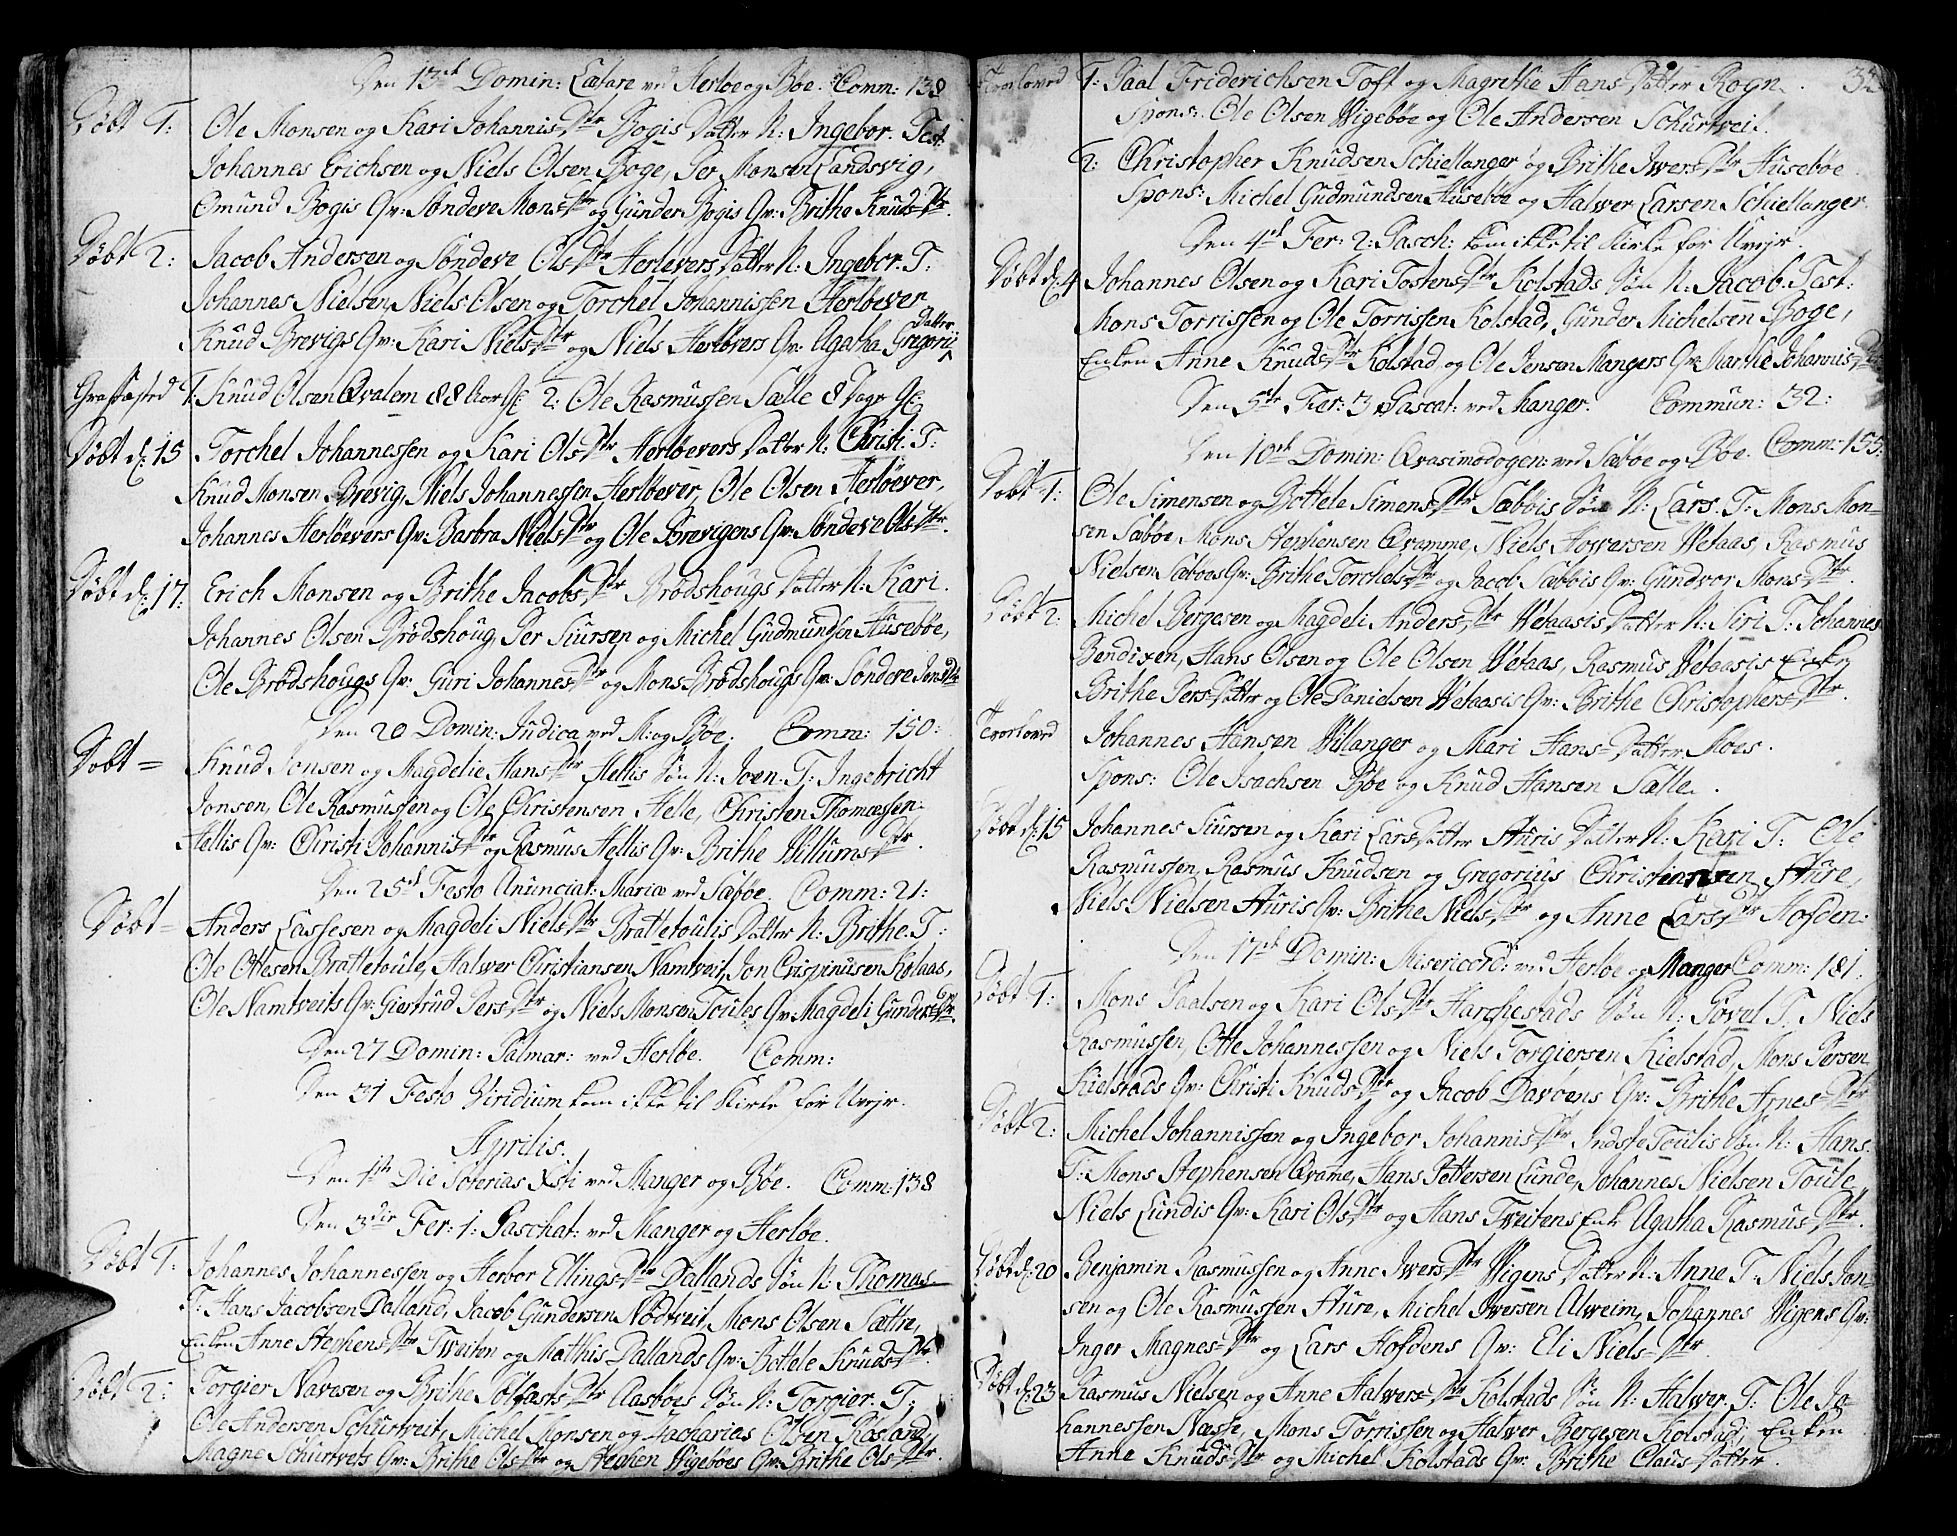 Den 13de Domin: Lætare ved Herløe og Bøe. Comm: 138
Døbt 1: Ole Monsen og Kari Johannis Dtr Bogis Datter N: Ingebor. Test:
Johannes Erichsen og Niels Olsen Boge, Per Monsen Landsvig,
Omund Bogis Qv: Søndeve Mons Dtr og Gunder Bogis Qv: Brithe Knuds Dtr.
Døbt 2: Jacob Andersen og Søndeve Ols Dtr Herlevers Datter N: Ingebor. T:
Johannes Nielsen, Niels Olsen og Torchel Johannissen Herløever
Knud Brevigs Qv: Kari Niels Dtr og Niels Herløvers Qv: Agatha Gregorii Datter
Graffæsted 1: Knud Olsen Qvalem 88 Aar Gl 2: Ole Rasmussen Sælle 8 Dage Gl
Døbt d: 15 Torchel Johannessen og Kari Ols Dtr Herløevers Datter N: Christi. T:
Knud Monsen Brevig, Niels Johannessen Herløever, Ole Olsen Herløever,
Johannes Herløevers Qv: Barbra Niels Dtr og Ole Brevigens Qv: Søndeve Ols Dtr.
Døbt d: 17: Erich Monsen og Brithe Jacobs Dtr Brødshougs Datter N: Kari.
Johannes Olsen Brødshoug, Per Siursen og Michel Gudmundsen Husebøe,
Ole Brødshougs Qv: Guri Johannes Dtr og Mons Brødshougs Qv: Søndeve Jens Dtr
Den 20 Domin: Judica ved M: og Bøe. Comm: 150:
Døbt = Knud Jonsen og Magdelie Hans Dtr Hellis Søn N: Joen. T: Ingebricht
Jonsen, Ole Rasmussen og Ole Christensen Helle, Christen Thomæssen
Hellis Qv: Christi Johannis Dtr og Rasmus Hellis Qv: Brithe Willums Dtr.
Den 25de Festo Anunciat: Mariæ ved Sæbøe. Comm: 21:
Døbt = Anders Lassesen og Magdeli Niels Dtr Brattetoulis Datter N: Brithe. T:
Ole Ottesen Brattetoule, Halver Christiansen Namtveit, Jon Crispinusen Kolaas,
Ole Namtveits Qv: Giertrud Pers Dtr og Niels Monsen Toules Qv: Magdeli Gunders Dtr.
Den 27 Domin: Palmar: ved Herløe. Comm:
Den 31 Festo Viridium kom ikke til Kirke for Uvejr.
Aprilis.
Den 1ste Die Soterias Xsti ved Manger og Bøe. Comm: 138
Den 3die Fer: 1: Paschat: ved Manger og Herløe.
Døbt 1: Johannes Johannessen og Herbor Ellings Dtr Dallands Søn N: Thomas
T: Hans Jacobsen Dalland, Jacob Gundersen Nødtveit, Mons Olsen Sættre,
Enken Anne Stephens Dtr Tveiten og Mathis Dallands Qv: Bottele Knuds Dtr.
Døbt 2: Torgier Navesen og Brithe Solfasts Dtr Aasbøes Søn N: Torgier. T:
Ole Andersen Schurtveit, Michel Monsen og Zacharias Olsen Røsland,
Magne Schurtvets Qv: Brithe Ols Dtr og Stephen Wigebøes Qv: Brithe Ols Dtr.
Trorlowed 1: Paal Friderichsen Toft og Magrethe Hans Datter Rogn.
Spons: Ole Olsen Wigebøe og Ole Andersen Schurtveit.
2: Christopher Knudsen Schiellanger og Brithe Iwers Dtr Husebøe
Spons: Michel Gudmundsen Husebøe og Halver Larsen Schiellanger.
Den 4de Fer: 2: Pasch: kom ikke til Kirke for Uvejr.
Døbt d: 4 Johannes Olsen og Kari Tostens Dtr Kolstads Søn N: Jacob. Test:
Mons Torrissen og Ole Torrissen Kolstad, Gunder Michelsen Boge,
Enken Anne Knuds Dtr Kolstad og Ole Jensen Mangers Qv: Marthe Johannis Dtr
Den 5te Fer: 3 Pascat: ved Manger. Commun: 32:
Den 10de Domin: Qvasimodogen: ved Sæbøe og Bøe. Comm: 155:
Døbt 1: Ole Simensen og Bottele Simens Dtr Sæbøis Søn N: Lars. T: Mons Mon=
sen Sæbøe, Mons Stephensen Qvamme, Niels Howersen Wetaas, Rasmus
Nielsen Sæbøes Qv: Brithe Torchels Dtr og Jacob Sæbøis Qv: Gundvor Mons Dtr.
Døbt 2: Michel Bergesen og Magdeli Anders Dtr Wetaasis Datter N: Siri T: Johannes
Bendixen, Hans Olsen og Ole Olsen Wetaas, Rasmus Wetaasis Enke
Brithe Pers Datter og Ole Danielsen Wetaasis Qv: Brithe Christophers Dtr.
Trorlowed Johannes Hansen Willanger og Mari Hans Datter Moes.
Spons: Ole Isachsen Bøe og Knud Hansen Sælle.
Døbt d: 15 Johannes Siursen og Kari Lars Datter Hturis Datter N: Kari T: Ole
Rasmussen, Rasmus Knudsen og Gregorius Christensen Sture,
Niels Nielsen Sturis Qv: Brithe Niels Dtr og Anne Lars Dtr Hofden:
Den 17de Domin: Misericord: ved Herløe og Manger Comm: 181.
Døbt 1: Mons Paalsen og Kari Ols Dtr Harchestads Søn N: Povel T. Niels
Rasmussen, Otte Johannessen og Niels Torgiersen Kielstad, Mons Persen
Kielstads Qv: Christi Knuds Dtr og Jacob Davoens Qv: Brithe Arnes Dtr
Døbt 2: Michel Johannissen og Ingebor Johannis Dtr Indste Toulis Søn N: Hans.
T: Mons Stephensen Qvame, Hans Pettersen Lunde, Johannes Nielsen Toule
Niels Lundis Qv: Kari Ols Dtr og Hans Tweitens Enke Agatha Rasmus Dtr.
Døbt d: 20 Benjamin Rasmussen og Anne Iwers Dtr Wigens Datter N: Anne T: Niels Jon=
sen og Ole Rasmussen Sture, Michel Iwersen Alveim, Johannes Wigens Qv:
Inger Magnes Dtr og Lars Hofdens Qv: Eli Niels Dtr.
Døbt d: 23 Rasmus Nielsen og Anne Halvers Dtr Kolstads Søn N: Halver. T: Ole Jo=
hannessen Næsse, Mons Torrissen og Halver Bergesen Kolstad, Enken
Anne Knuds Dtr og Michel Kolstads Qv: Brithe Claus Datter.